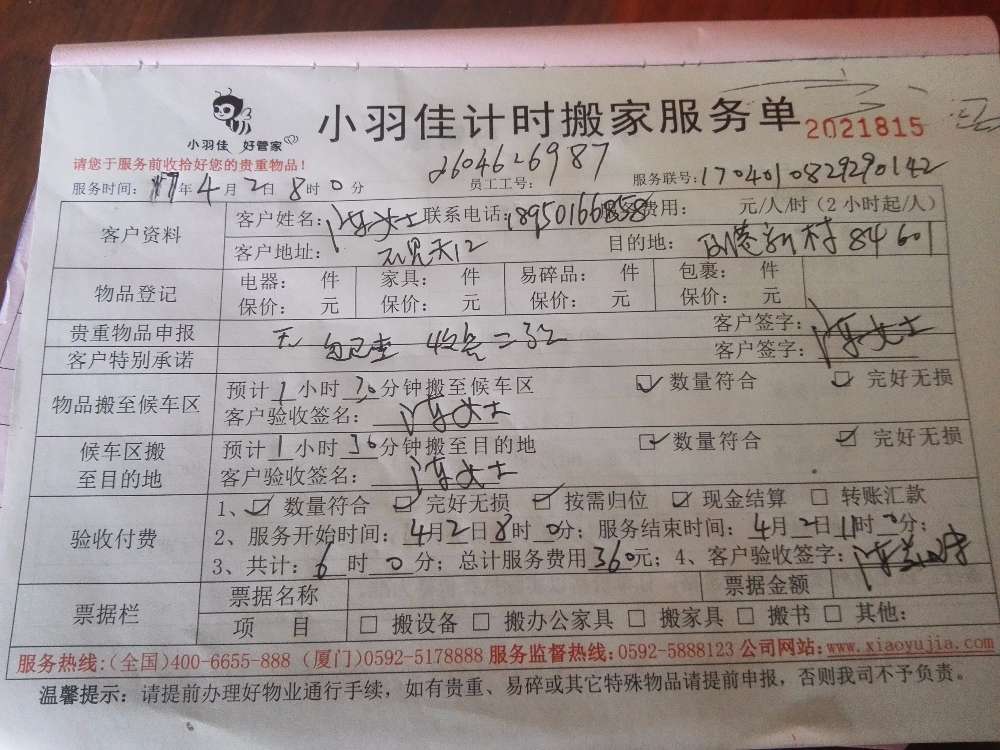 小羽佳 好管家
小羽佳计时搬家服务单
2021815
请您于服务前收拾好您的贵重物品！
服务时间：17年4月2日8时0分
员工工号：2604626987
服务联号：1704010829290142
客户资料
客户姓名：陈女士 联系电话：18950166858 服务费用： 元/人/时（2小时起/人）
客户地址： 目的地： 新村84 601
物品登记
电器： 件 家具： 件 易碎品： 件 包裹： 件
保价： 元 保价： 元 保价： 元 保价： 元
贵重物品申报 无 客户签字：陈女士
客户特别承诺 客户签字：
物品搬至候车区
预计1小时30分钟搬至候车区 ☑数量符合 ☑完好无损
客户验收签名：陈女士
候车区搬至目的地
预计1小时30分钟搬至目的地 ☑数量符合 ☑完好无损
客户验收签名：陈女士
验收付费
1、☑数量符合 ☑完好无损 ☑按需归位 ☑现金结算 □转账汇款
2、服务开始时间：4月2日8时0分；服务结束时间：4月2日11时0分；
3、共计：6时0分；总计服务费用360元；4、客户验收签字：
票据栏
票据名称 票据金额
项 目 □搬设备 □搬办公家具 □搬家具 □搬书 □其他：
服务热线：(全国)400-6655-888 (厦门)0592-5178888 服务监督热线：0592-5888123 公司网站：www.xiaoyujia.com
温馨提示：请提前办理好物业通行手续，如有贵重、易碎或其它特殊物品请提前申报，否则我司不予负责。